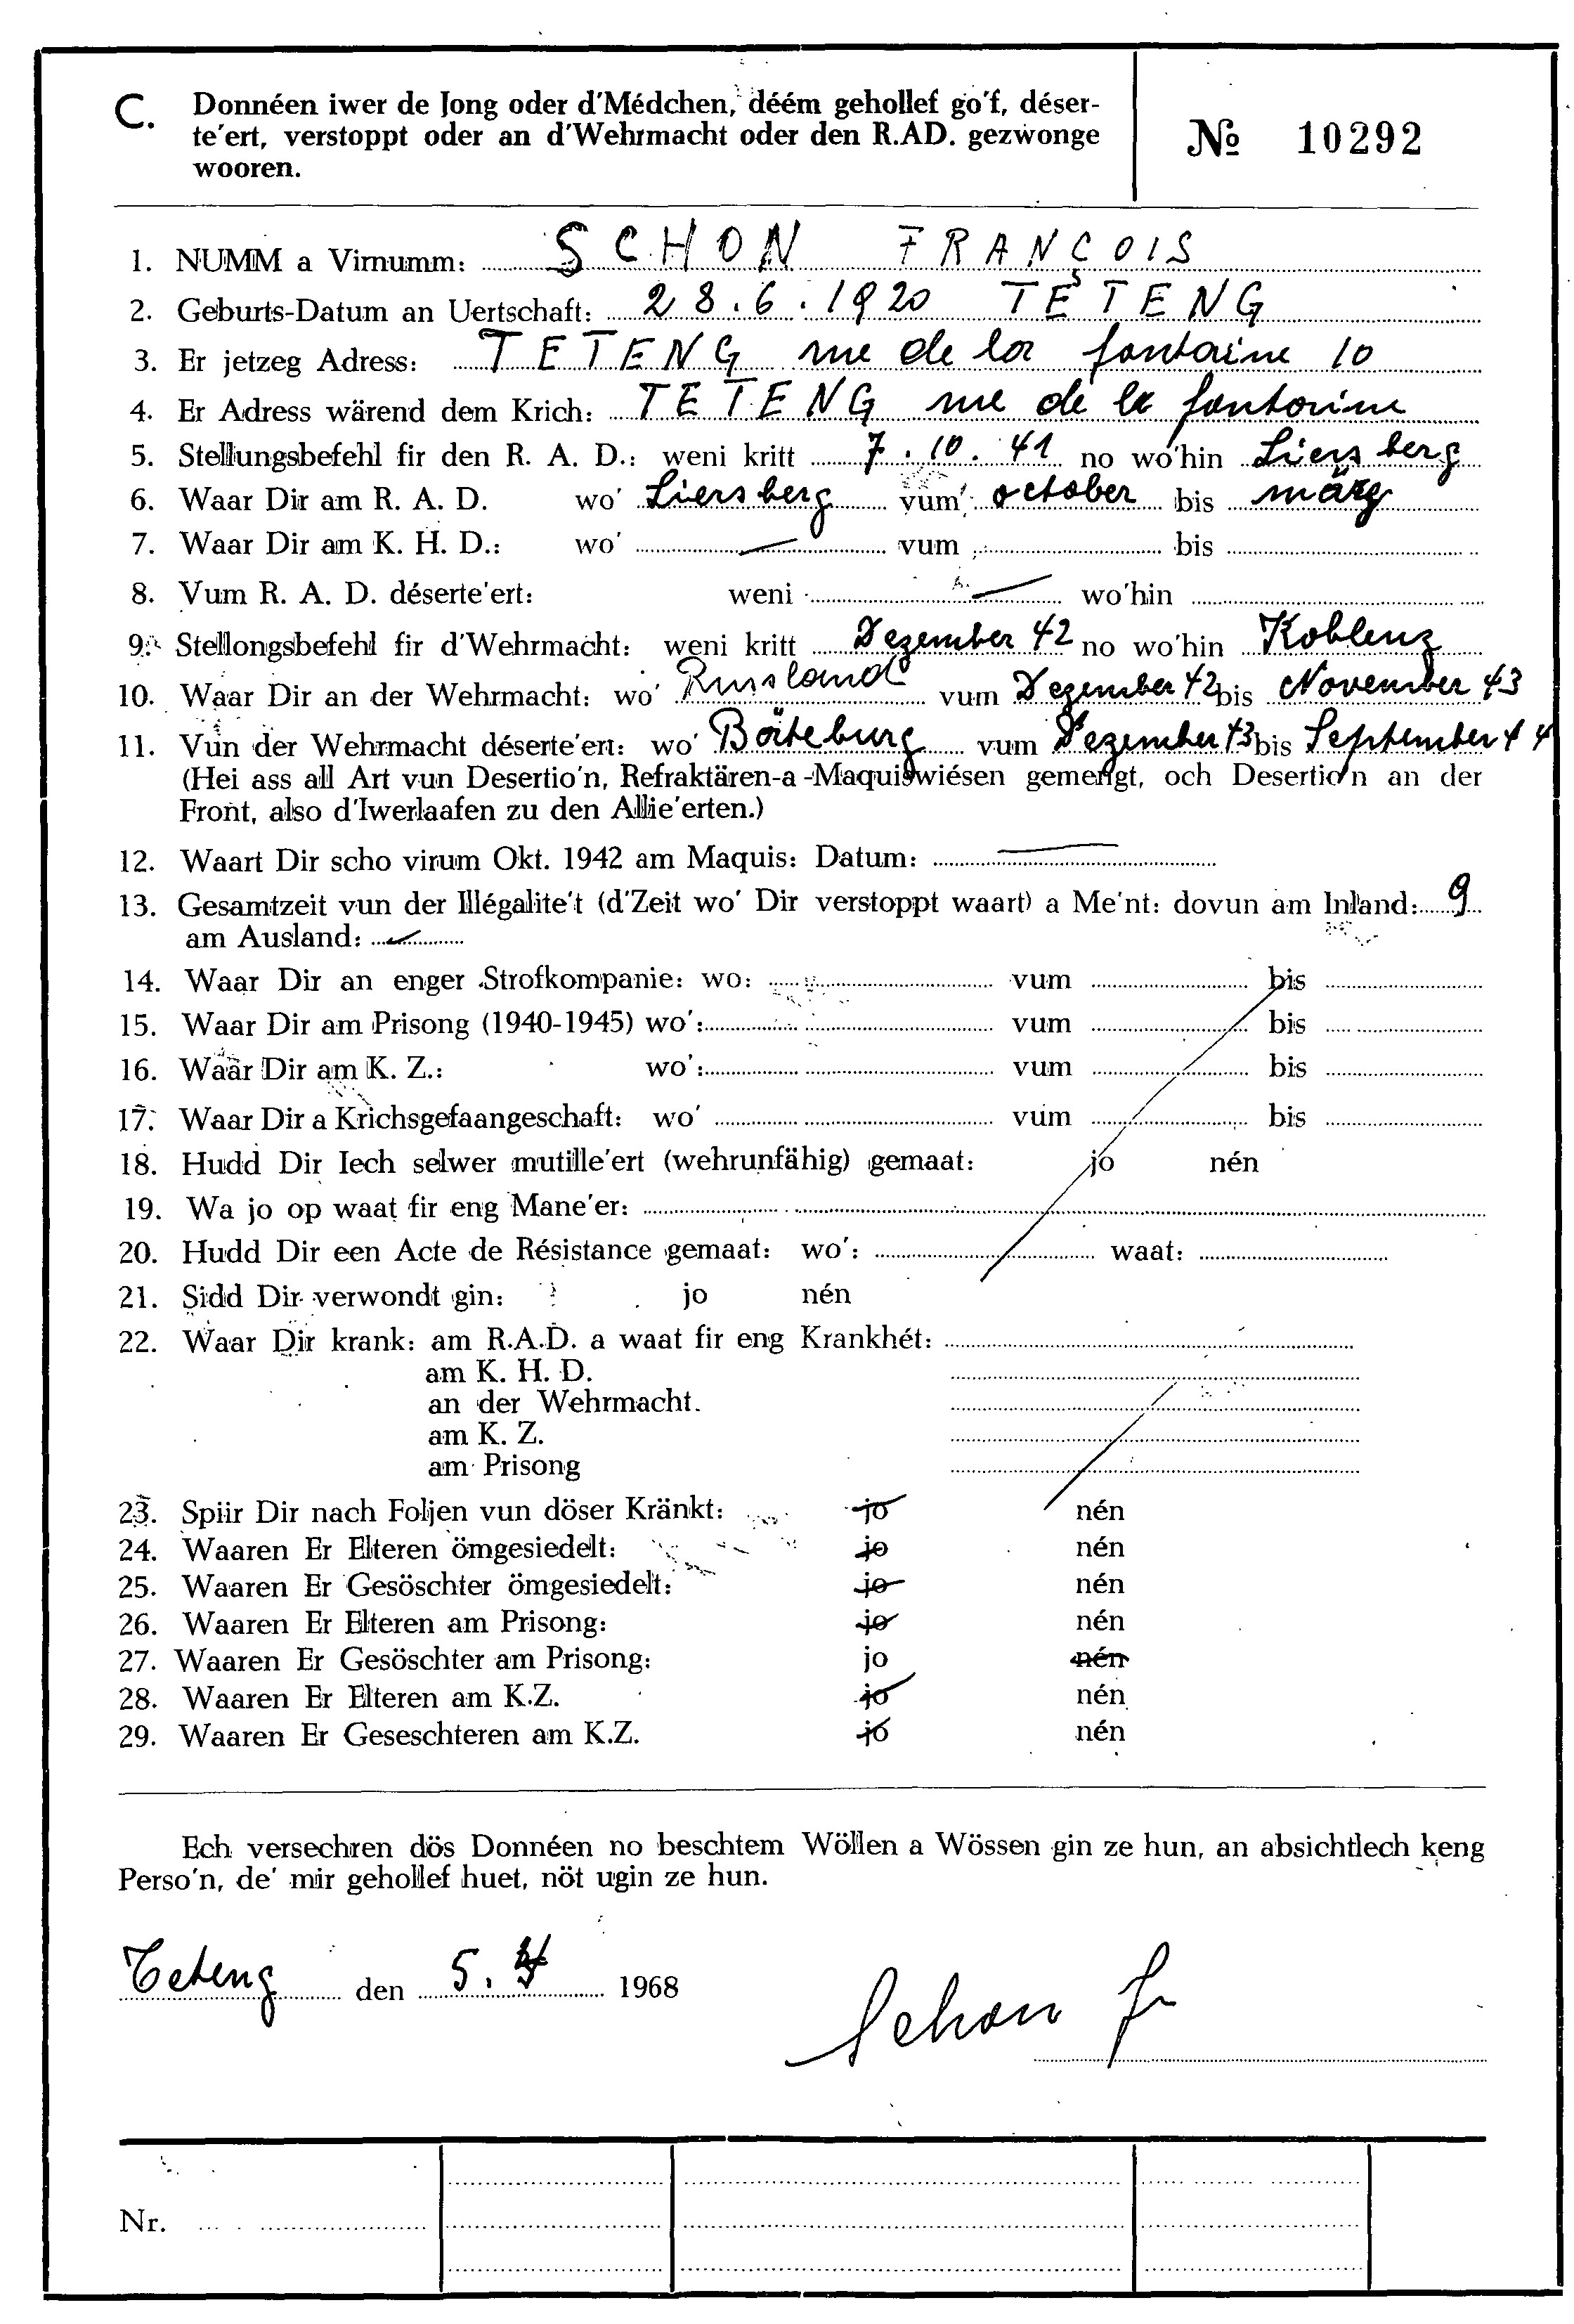 C. Donnéen iwer de Jong oder d'Médchen, déém gehollef go'f, déser-
te'ert, verstoppt oder an d'Wehrmacht oder den R.AD. gezwonge
wooren.
№ 10292
1. NUMM a Virnumm: SCHON FRANÇOIS
2. Geburts-Datum an Uertschaft: 28.6.1920 TETENG
3. Er jetzeg Adress: TETENG rue de la fontaine 10
4. Er Adress wärend dem Krich: TETENG rue de la fontaine
5. Stellungsbefehl fir den R. A. D.: weni kritt 7.10.41 no wo'hin Liersberg
6. Waar Dir am R. A. D. wo' Liersberg vum october bis märz
7. Waar Dir am K. H. D.: wo' — vum bis
8. Vum R. A. D. déserte'ert: weni — wo'hin
9. Stellongsbefehl fir d'Wehrmacht: weni kritt Dezember 42 no wo'hin Koblenz
10. Waar Dir an der Wehrmacht: wo' Russland vum Dezember 42 bis November 43
11. Vun der Wehrmacht déserte'ert: wo' Böiteburg vum Dezember 43 bis September 44
(Hei ass all Art vun Desertio'n, Refraktären-a-Maquiswiésen gemengt, och Desertio'n an der
Front, also d'Iwerlaafen zu den Allie'erten.)
12. Waart Dir scho virum Okt. 1942 am Maquis: Datum: —
13. Gesamtzeit vun der Illégalite't (d'Zeit wo' Dir verstoppt waart) a Me'nt: dovun am Inland: 9
am Ausland: —
14. Waar Dir an enger Strofkompanie: wo: vum bis
15. Waar Dir am Prisong (1940-1945) wo': vum bis
16. Waar Dir am K. Z.: wo': vum bis
17. Waar Dir a Krichsgefaangeschaft: wo' vum bis
18. Hudd Dir Iech selwer mutille'ert (wehrunfähig) gemaat: jo nén
19. Wa jo op waat fir eng Mane'er:
20. Hudd Dir een Acte de Résistance gemaat: wo': waat:
21. Sidd Dir verwondt gin: jo nén
22. Waar Dir krank: am R.A.D. a waat fir eng Krankhét:
am K. H. D.
an der Wehrmacht.
am K. Z.
am Prisong
23. Spiir Dir nach Foljen vun döser Kränkt: jo nén
24. Waaren Er Elteren ömgesiedelt: jo nén
25. Waaren Er Gesöschter ömgesiedelt: jo nén
26. Waaren Er Elteren am Prisong: jo nén
27. Waaren Er Gesöschter am Prisong: jo nén
28. Waaren Er Elteren am K.Z. jo nén
29. Waaren Er Geseschteren am K.Z. jo nén
Ech versechren dös Donnéen no beschtem Wöllen a Wössen gin ze hun, an absichtlech keng
Perso'n, de' mir gehollef huet, nöt ugin ze hun.
Teteng den 5. 1968
Schon Fr
Nr.